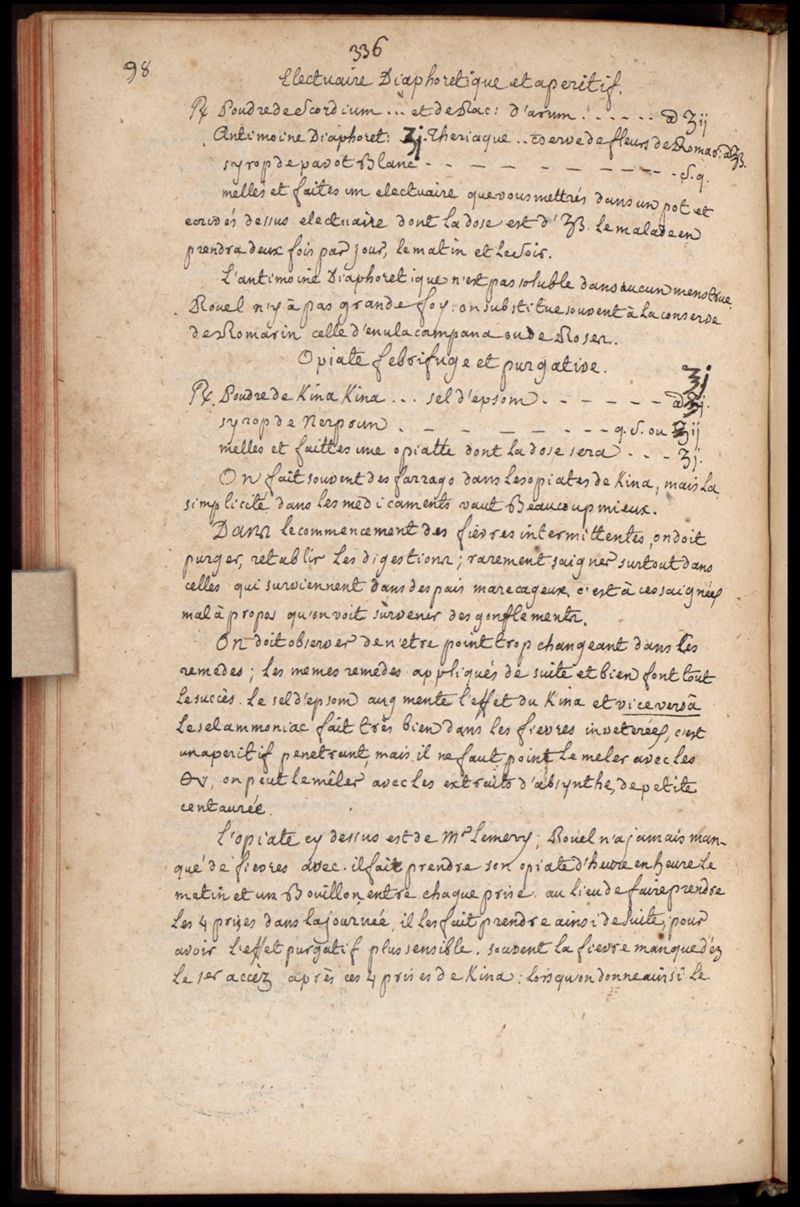 336
98
Electuaire Diaphoretique et aperitif.
℞ Poudre de Scordium ... et de Rac: d'arum ...... a ʒij
Antimoine Diaphoret: ʒj. Theriaque .. cserve de fleurs de Romar. aʒß.
syrop de pavot Blanc - - - - - - - - - - S.q.
mellés et faites un electuaire que vous mettrés dans un pot et
ecrivés dessus electuaire dont la dose est d'ʒß. le malade en
prendra deux fois par jour, le matin et le Soir.
L'antimoine Diaphoretique n'est pas soluble dans aucun menstrue
Rouel n'y à pas grande foy. on substitue souvent à la conserve
de Romarin celle d'enula campana ou de Roses.
Opiate febrifuge et purgative.
℞ Poudre de Kina Kina ... sel d'epsom - - - - - - a ʒj.
syrop de Nerprun - - - - - - - - q.S. ou ʒij
mellés et faittes une opiatte dont la dose sera - - - ʒj.
On fait souvent des farrago dans les opiates de Kina, mais la
simplicité dans les medicaments vaut Beaucoup mieux.
Dans le commencement des fievres intermittentes, on doit
purger, retablir les digestions; rarement saigner surtout dans
celles qui surviennent dans des pais marecageux, c'est à ces saignées
mal à propos qu'on voit survenir des gonflements.
On doit observer de n'etre point trop changeant dans les
remedes; les memes remedes appliqués de suite et bien font tout
le succès. Le sel d'epsom augmente l'effet du Kina et vice versâ
Le sel ammoniac fait très bien dans les fievres inveterées, c'est
un aperitif penetrant, mais il ne faut point le meler avec les
, on peut le mêler avec les extraits d'absynthe, de petite
centaurée.
L'opiate cy dessus est de Mr Lemery; Rouel n'a jamais man-
qué de fievres avec. il fait prendre son opiate d'heure en heure le
matin et un Bouillon entre chaque prise. au lieu de faire prendre
les 4 prises dans la journée, il les fait prendre ainsi de suite, pour
avoir l'effet purgatif plus sensible. souvent la fievre manque d'ez
le 1er accez après ces 4 prises de Kina: lorsqu'on donne ainsi le